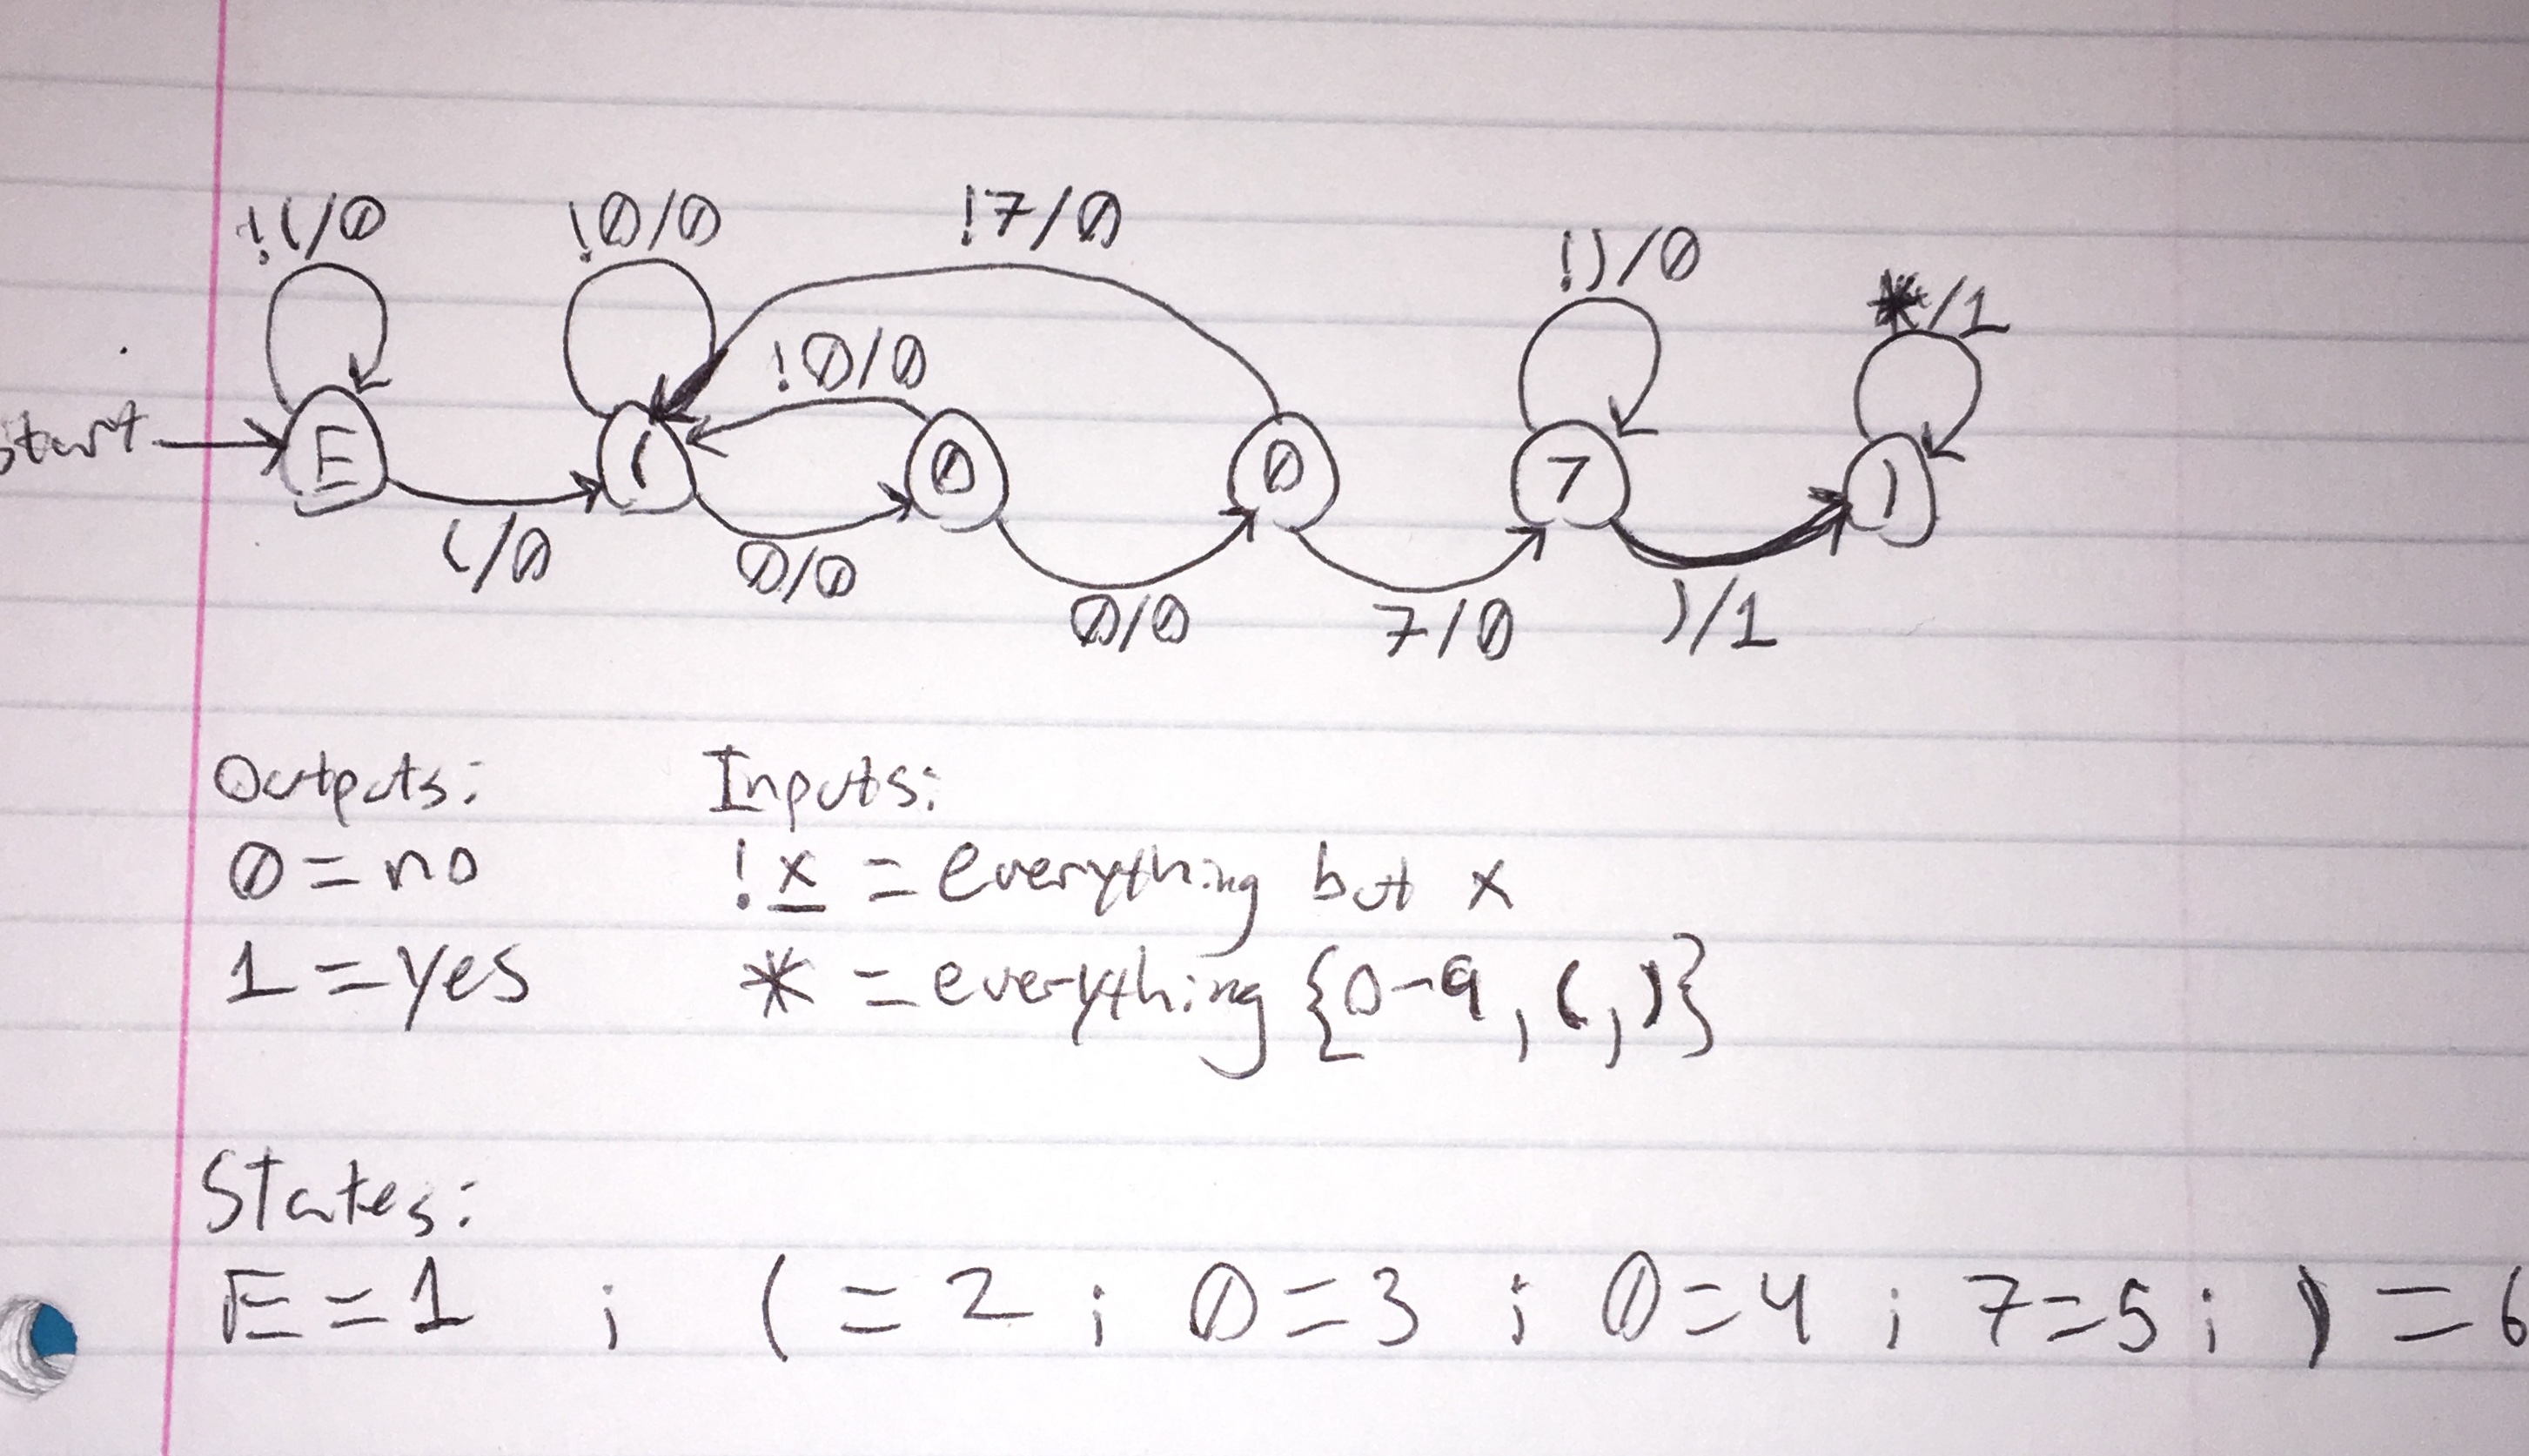 !(/0 !0/0 !7/0 !)/0 */1
!0/0
start E ( 0 0 7 )
(/0 0/0 0/0 7/0 )/1
Outputs: Inputs:
0 = no !x = everything but x
1 = yes * = everything {0-9, (, )}
States:
E = 1 ; ( = 2 ; 0 = 3 ; 0 = 4 ; 7 = 5 ; ) = 6